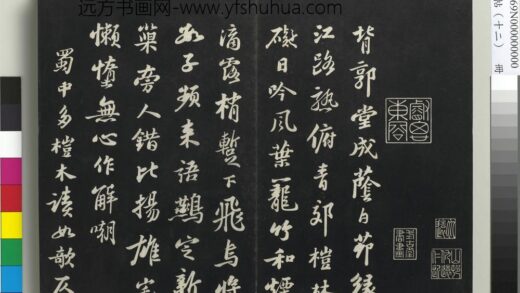 远方书画网-www.yfshuhua.com
69N00000000000
帖(十二)
背郭堂成蔭白茆緣
江路熟俯青郊榿林
礙日吟風葉籠竹和煙
滴露梢蹔下飛烏將
數子頻來語鷰定新
巢旁人錯比揚雄宅
懶惰無心作解嘲
蜀中多榿木讀如欹仄